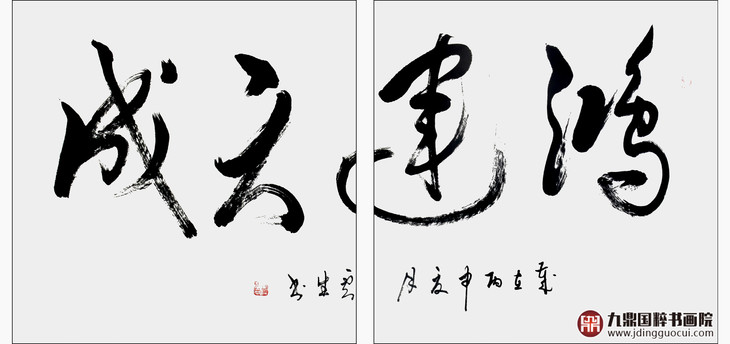 鸿運天成
歲在丙申夏月雲 书
九鼎国粹书画院
www.jdingguocui.com